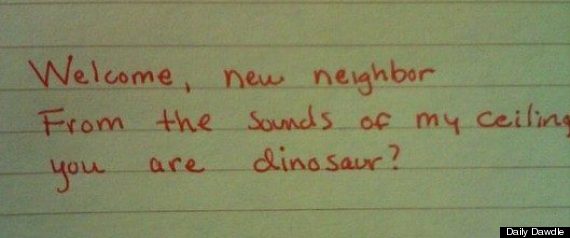 Welcome, new neighbor
From the sounds of my ceiling
you are dinosaur?
Daily Dawdle